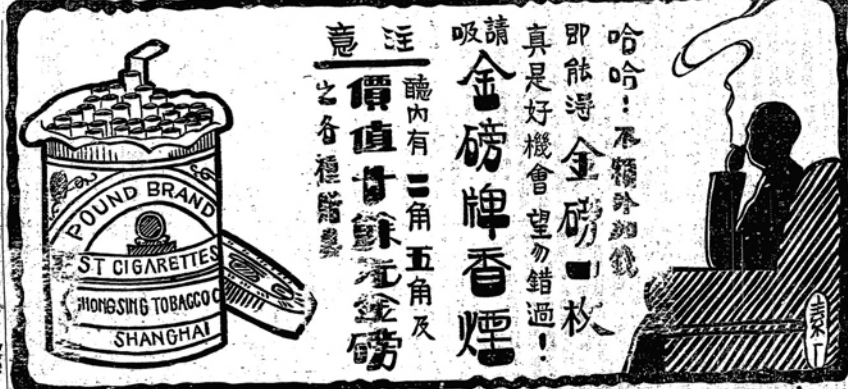 哈哈!不
即能得金磅一枚
真是好機會望勿錯過!
請吸
金磅牌香煙
注意
聽內有二角五角及
價值餘元金磅
之各種
素厂
POUND BRAND
ST CIGARETTES
HONGSING TOBACCO C
SHANGHAI